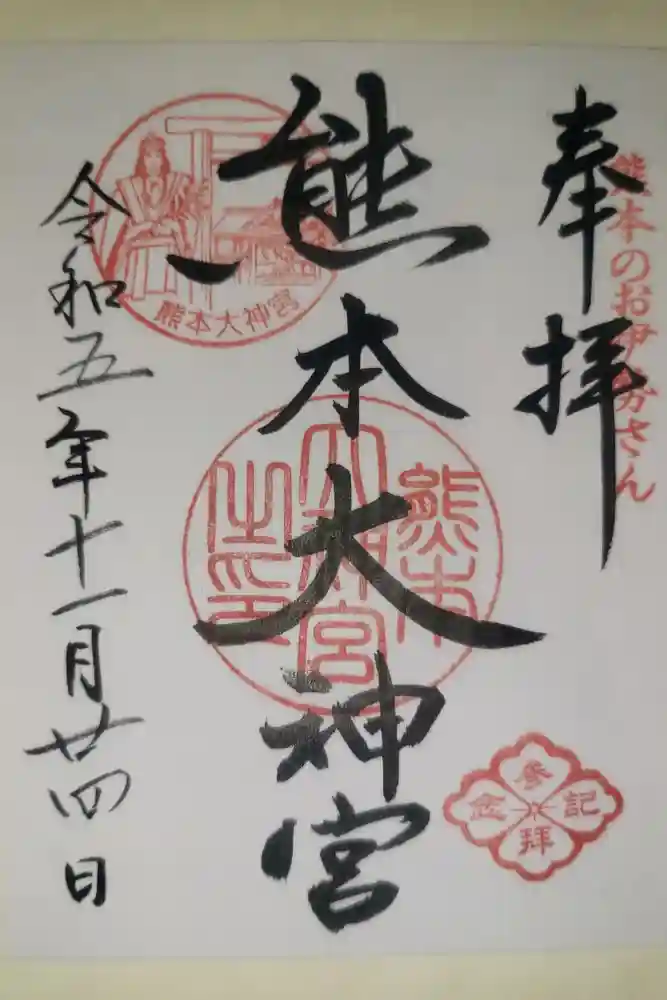 奉拝
熊本のお伊勢さん
熊本大神宮
熊本大神宮
熊本
大神宮
之印
参拝記念
令和五年十一月廿四日